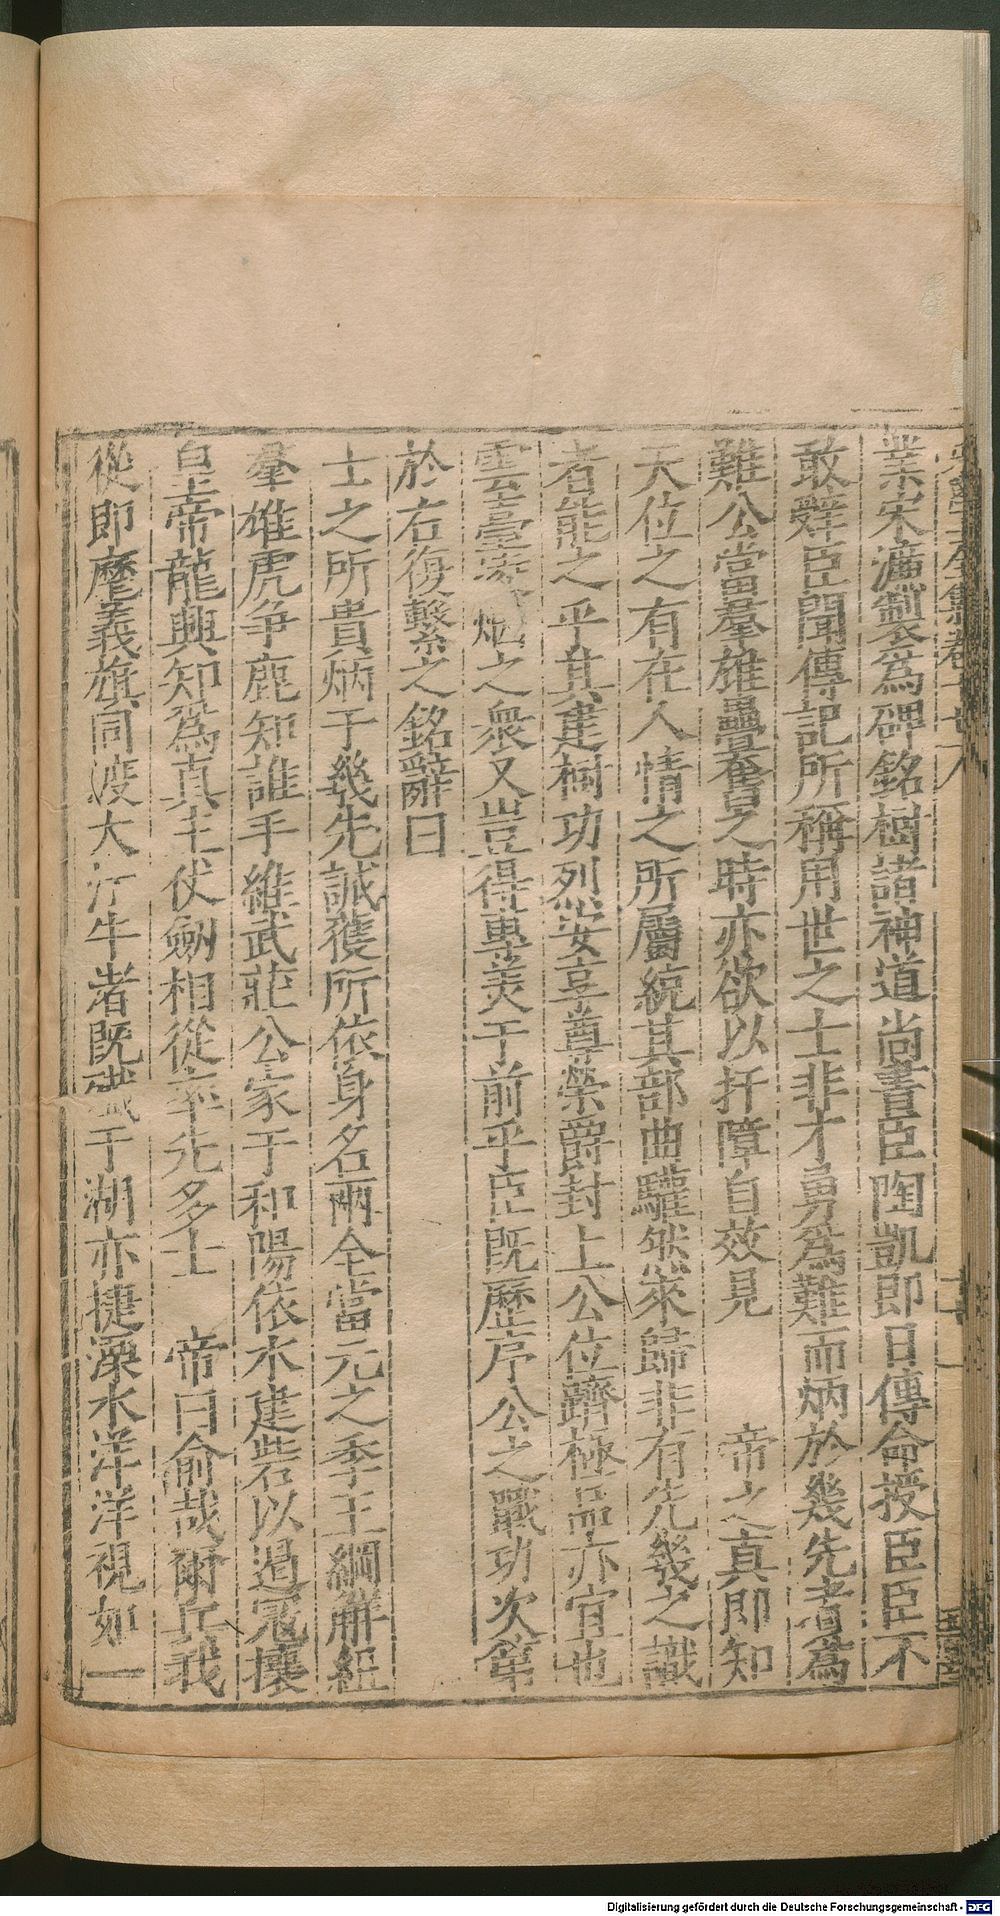 業宋濂製為碑銘樹諸神道尚書臣陶凱即日傳命授臣臣不
敢辭臣聞傳記所稱用世之士非才勇為難而炳於幾先者為
難公當羣雄疊奮之時亦欲以扞障自效見　帝之真即知
天位之有在人情之所屬統其部曲驩然來歸非有先幾之識
者能之乎其建樹功烈安享尊榮爵封上公位躋極品亦宜也
雲臺凌烟之衆又豈得專美于前乎臣既歷序公之戰功次第
於右復繫之銘辭曰
士之所貴炳于幾先誠獲所依身名兩全當元之季王綱解紐
羣雄虎爭鹿知誰手維武莊公家于和陽依水建砦以遏寇攘
皇帝龍興知為真主仗劒相從率先多士　帝曰俞哉爾兵我
從即麾義旗同渡大江牛渚既殲于湖亦捷溧水洋洋視如一
Digitalisierung gefördert durch die Deutsche Forschungsgemeinschaft - DFG